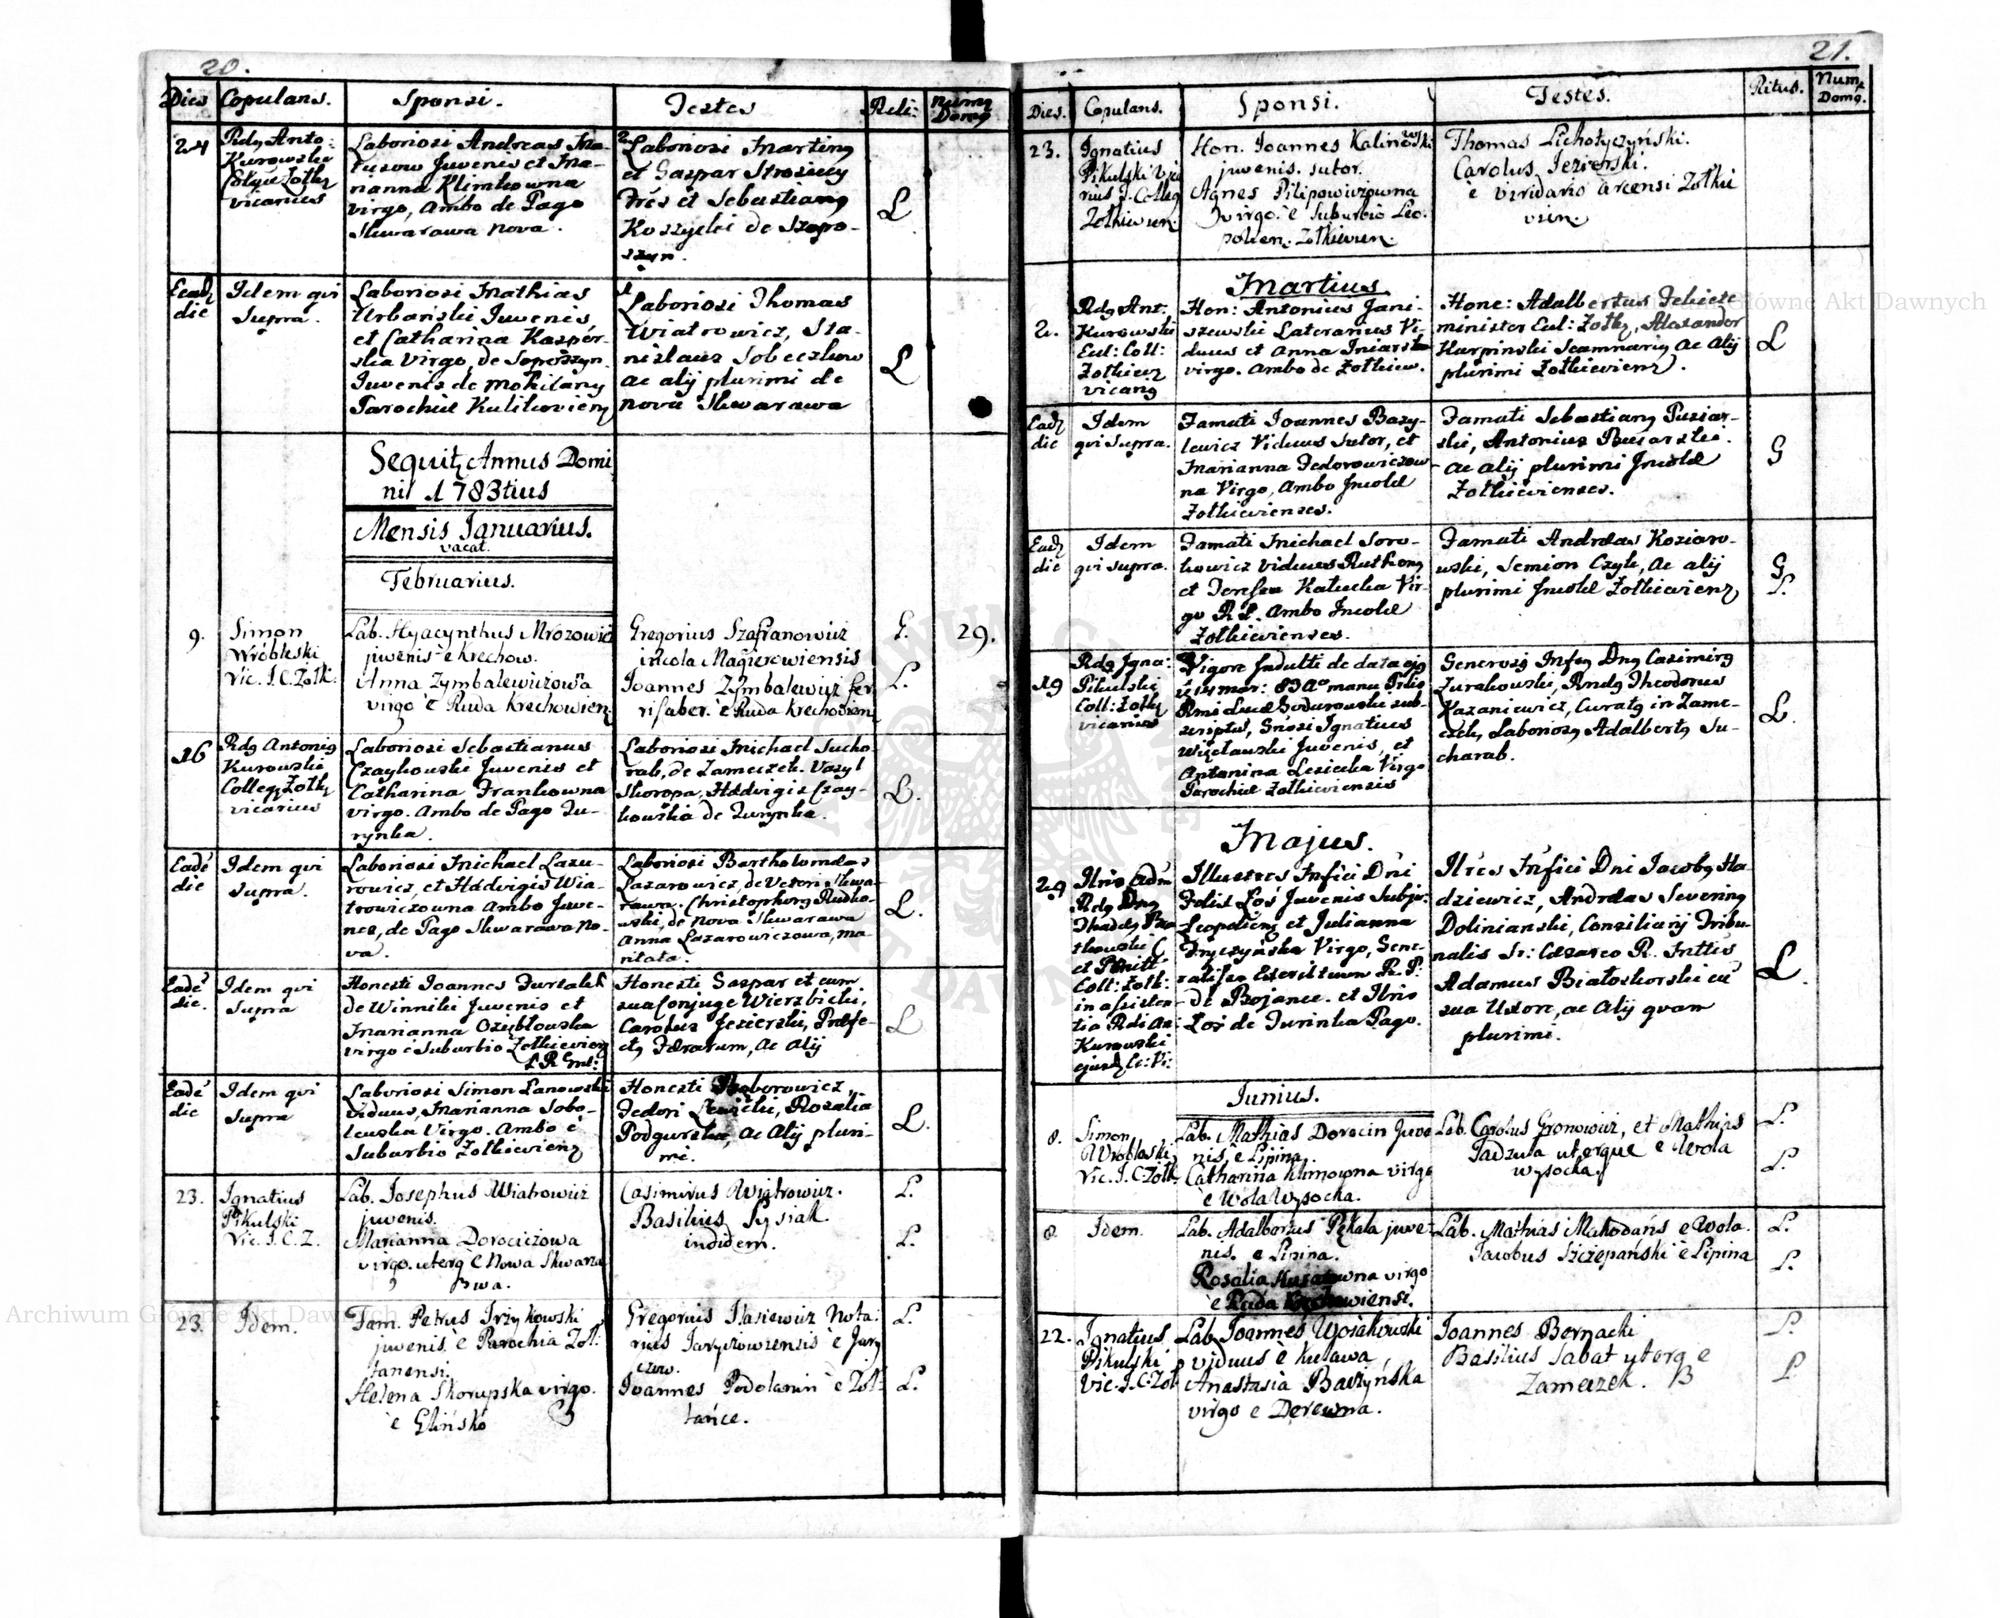 20.
Dies Copulans. Sponsi. Testes Reli: Numg Domg
24
Rdg Anto:
Kurowski
Collgu Zolkg
vicarius
Laboriosi Andreas Ma-
Juvenis et Ma-
rianna Klimkowna
virgo, Ambo de Pago
Skwarawa Nova.
Laboriosi Marting
et Gaspar
Frēs et Sebastiang
Koszycki de Szopo-
szyn.
L
Eadz
die
Idem qvi
Supra.
Laboriosi Mathias
Urbanski Juvenis
et Catharina Kasper-
ska Virgo, de Soposzyn.
Juvenis de Mokilany
Parochiæ Kulikovienz
Laboriosi Thomas
Wiatrowicz, Sta-
nislaus Sobeczkow
ac alij plurimi de
nova Skwarawa
L
Sequitz Annus Domi
ni 1783tius
Mensis Januarius.
vacat.
Februarius.
9.
Simon
Wróbleski
Vic. I. C. Zolk.
Lab. Hyacynthus Mrozowic
juvenis è Krechow.
Anna Zymbalewiczowa
virgo è Ruda Krechowienz
Gregorius Szafranowicz
incola Magierowiensis
Joannes Zymbalewicz fer
rifaber. è Ruda Krechovienz
G.
L.
29.
16
Rdg Antonig
Kurowski
Collegz Zolkz
vicarius
Laboriosi Sebastianus
Czaykowski Juvenis et
Catharina Frankowna
virgo. Ambo de Pago Tu-
rynka.
Laboriosi Michael Sucho-
rab, de Zameczek. Vasyl
Skoropa, Hedvigis Czay-
kowska de Turynka.
L.
Eadē
die
Idem qvi
Supra.
Laboriosi Michael Lazu-
rowicz, et Hedvigis Wia-
trowiczowna Ambo Juve-
nes, de Pago Skwarawa No-
va.
Laboriosi Bartholomæus
Lazarowicz, de Veteri Skwa-
rawa. Christophorg Rudko-
wski, de Nova Skwarawa
Anna Lazarowiczowa, ma-
ritata.
L.
Eadē
die.
Idem qvi
Supra
Honesti Joannes
de Winniki Juvenis et
Marianna Ozyblowska
virgo è Suburbio Zolkievienz
Honesti Gaspar et cum
sua Conjuge Wierzbicki,
Carolus Jezierski, Præfe-
ctg Ferarum, Ac Alij
L
Eadē
die
Idem qvi
Supra
Laboriosi Simon Lanowski
Viduus, Marianna Sobo-
lewska Virgo. Ambo è
Suburbio Zolkievienz
Honesti
Fedori Lewicki, Rozalia
Podgurska, Ac Alij pluri-
mi.
L.
23.
Ignatius
Pikulski
Vic. I. C. Z.
Lab. Josephus Wiatrowicz
juvenis.
Marianna Dorociczowa
virgo. uterg è Nowa Skwarza
wa.
Casimirus Wiatrowicz.
Basilius Pysiak
indidem.
L.
L.
23.
Idem.
Fam. Petrus Irzykowski
juvenis è Parochia Zol:
tanensi.
Helena Skorupska virgo.
è Glińsko
Gregorius Stasiewicz Nota:
rius Jaryczowiensis è Jary
czow.
Joannes Podolanin è Zol-
tańce.
L.
L.
21.
Dies. Copulans. Sponsi. Testes. Ritus. Num: Domg.
23.
Ignatius
Pikulski Vica
rius I. Colleg
Zolkiewien
Hon. Joannes Kalinowski
juvenis. sutor.
Agnes Pilipowiczowna
virgo. è Suburbio Leo.
polien. Zolkiewien.
Thomas Lichotyczyński.
Carolus Jezierski.
è viridario arcensi Zolki
vien.
Martius
2.
Rdg Ant.
Kurowski
Eccl: Coll:
Zolkievz
vicarig
Hon: Antonius Jani-
szewski Lateranius Vi-
duus et Anna
virgo. Ambo de Zolkiew.
Hone: Adalbertus
minister Eccl: Zolkz, Alexander
Karpinski Scamnarig Ac Alij
plurimi Zolkievienz.
L
Eadz
die
Idem
qvi Supra.
Famati Joannes Bazy-
lewicz Viduus Sutor, et
Marianna Fedorowiczow-
na Virgo, Ambo Incolæ
Zolkievienses.
Famati Sebastiang
ski, Antonius
ac alij plurimi Incolæ
Zolkievienses.
G
Eadz
die
Idem
qvi supra.
Famati Michael Soro-
kowicz viduus Ruthenz
et Teressa Kalucka Vir-
go R. L. Ambo Incolæ
Zolkievienses.
Famati Andræas Koziaro-
wski, Semion Czyk, Ac alij
plurimi Incolæ Zolkievienz
G
L.
19
Rdg Igna:
Pikulski
Coll: Zolkz
vicarius
Vigore Indulti de data
14 mar: 83 Ao manu
scriptus, Ignatius
Więclawski Juvenis, et
Antonina Lesicka Virgo
Parochiæ Zolkieviensis
Generosg Infeg Dng Casimirg
Zurakowski, Rndg Theodorus
Kazaniewicz, Curatg in Zame-
czek, Laboriosg Adalbertg Su-
charab.
L.
Majus.
29
Illris Adm
Rdg Dng
Coll: Zolk:
in assisten-
tia Rdi An.
Kurowski
Illustres Mfici Dni
Felix Łoś Juvenis Subju:
Leopolienz et Julianna
Virgo, Gene-
de Bojance. et Illris
Łoś de Turinka Pago.
Illres Mfici Dni Jacobg Ma-
dziewicz, Andræas Severing
Dolinianski, Consiliarij Tribu-
nalis Sr: Cæsareo R. Mttis
Adamus Białoskorski cū
sua Uxore, ac Alij quam
plurimi.
L.
Junius.
8.
Simon
Wróbleski
Vic. I. C. Zolk
Lab. Mathias Dorocin Juve
nis, è Lipina.
Catharina Klimowna virgo
è Wola Wysocka.
Lab. Carolus Gronowicz, et Mathias
Jadzula uterque è Wola
wysocka.
L.
L.
8
Idem.
Lab. Adalbertus Pękala juve-
nis. è Lipina.
Rosalia virgo
è Ruda Krechowiensi.
Lab. Mathias Makodańs è Wola.
Jacobus Szczepański è Lipina
L.
L.
22.
Ignatius
Pikulski
Vic. I. C. Zol
Lab. Joannes Wosakowski
viduus è Kulawa,
Anastasia Baczyńska
virgo è Derewna.
Joannes Bernacki
Basilius Sabat uterg è
Zameczek.
L.
L
Archiwum Główne Akt Dawnych
Archiwum Główne Akt Dawnych